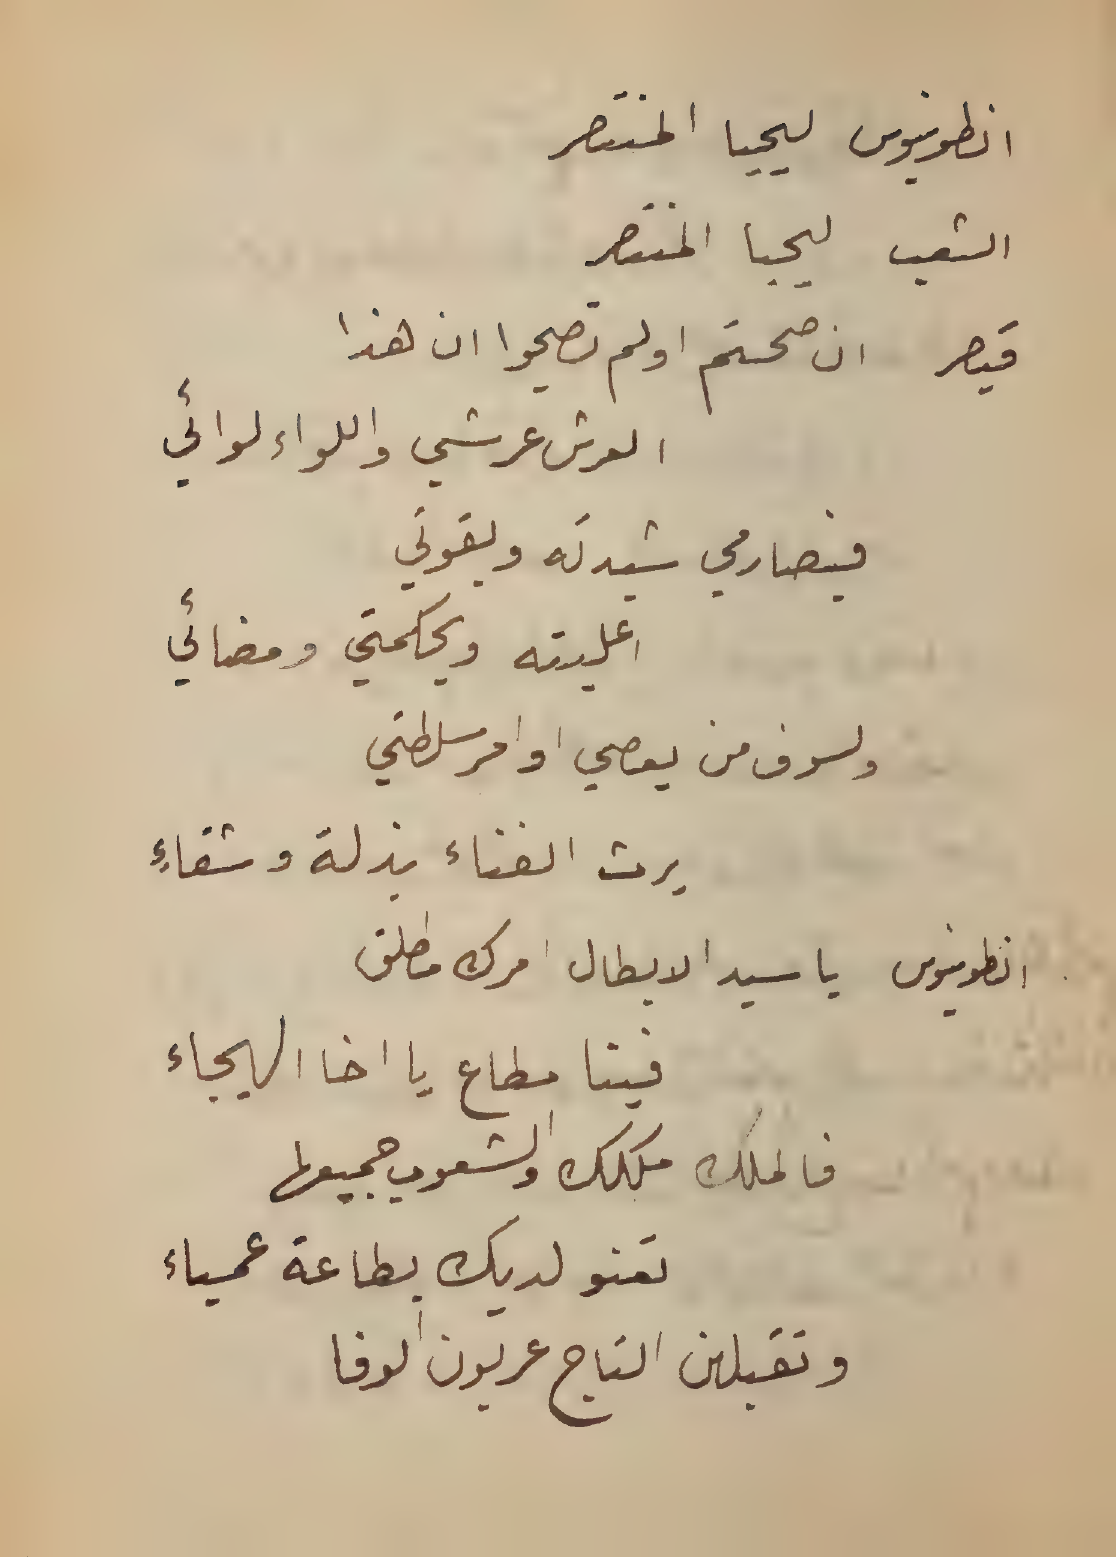 انطونيوس ليحيا المنتصر
الشعب ليحيا المنتصر
قيصر ان صحتم او لم تصيحوا ان هذا
العرش عرشي واللواء لوائي
فبصارمي شيدته وبقوتي
اعليته وبحكمتي ومضائي
ولسوف من يعصي اوامر سلطتي
يرث الفناء بذلة وشقاء
انطونيوس يا سيد الابطال امرك مطلق
فينا مطاع يا اخا الهيجاء
فالملك ملكك والشعوب جميعها
تعنو لديك بطاعة عمياء
وتقبلن التاج عربون الوفا